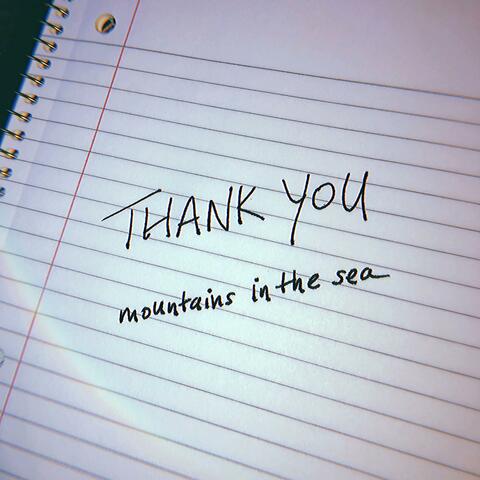 THANK YOU
mountains in the sea